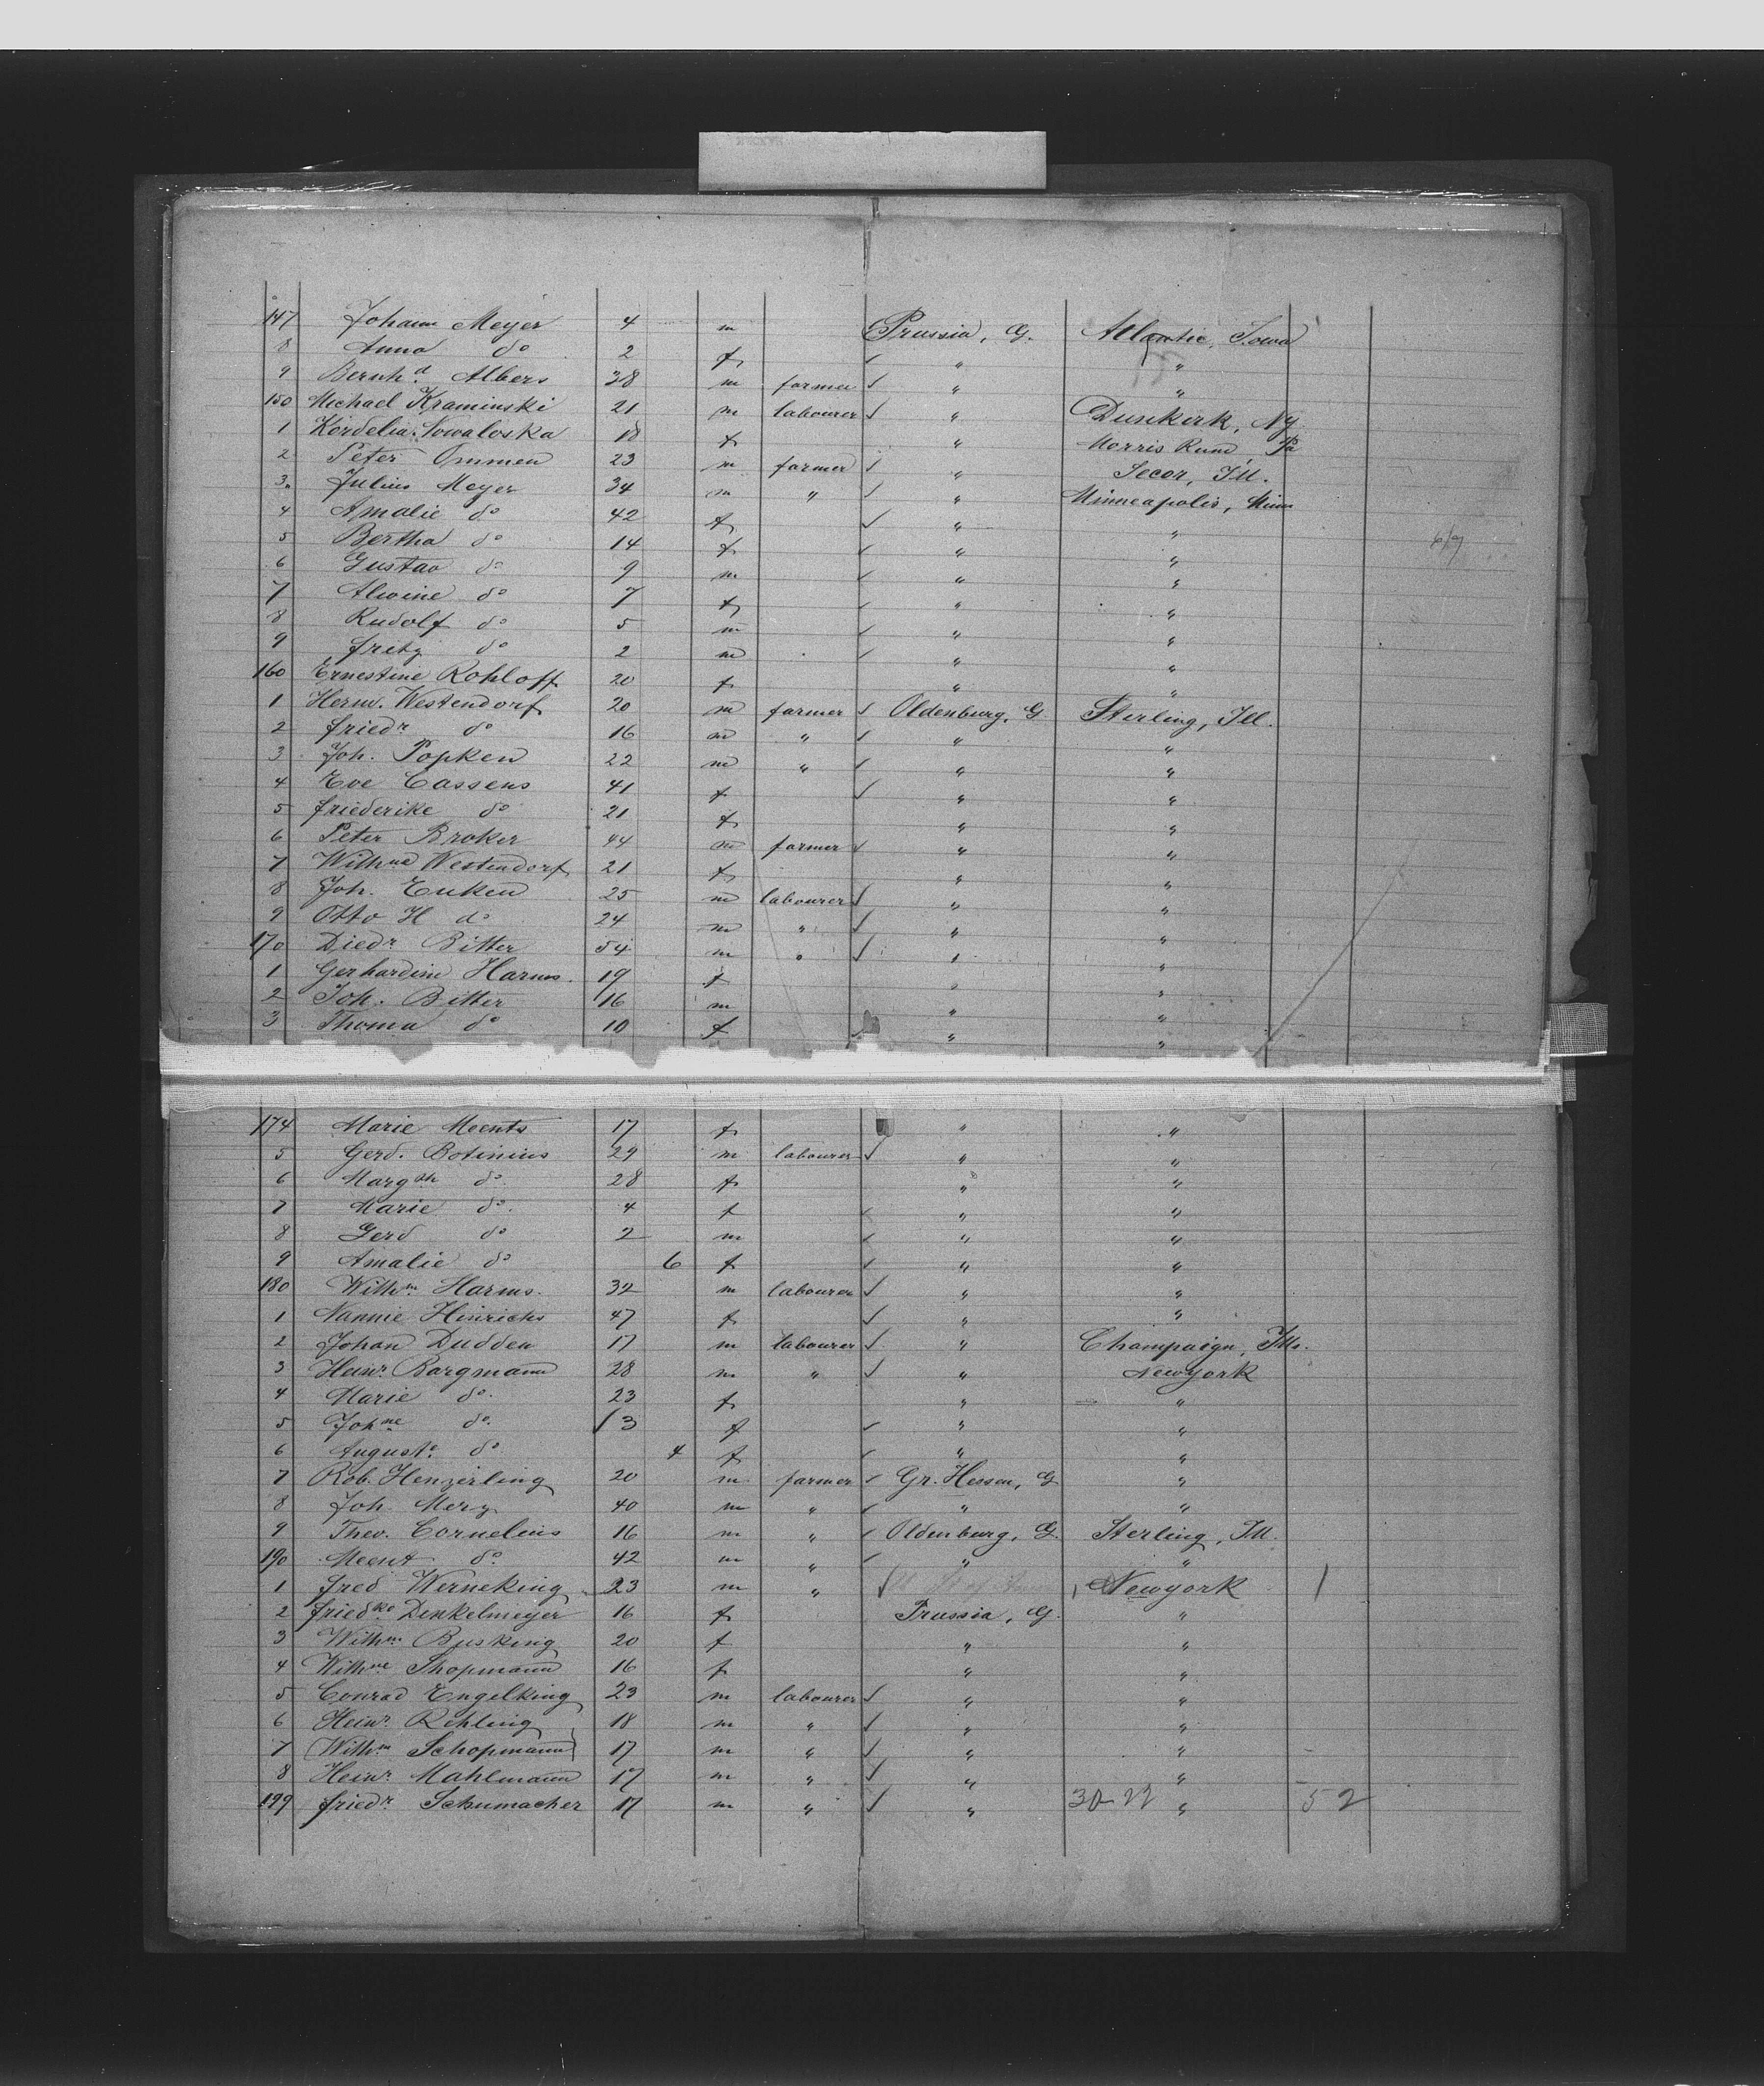 147 Johann Meyer 4 m Prussia, G. Atlantic, Iowa
8 Anna do 2 f " "
9 Bernhd. Albers 38 m farmer " "
150 Michael Kraminski 21 m labourer " Dunkirk, NY
1 Kordelia Nowaloska 18 f " Morris Run Pa
2 Peter Ommen 23 m farmer " Secor, Ill.
3 Julius Meyer 34 m " " Minneapolis, Minn
4 Amalie do 42 f " "
5 Bertha do 14 f " "
6 Gustav do 9 m " "
7 Alwine do 7 f " "
8 Rudolf do 5 m " "
9 Fritz do 2 m " "
160 Ernestine Rohloff 20 f " "
1 Herm. Westendorf 20 m farmer Oldenburg, G Sterling, Ill.
2 Friedr do 16 m " " "
3 Joh. Popken 22 m " " "
4 Eve Cassens 41 f " "
5 Friederike do 21 f " "
6 Peter Broker 44 m farmer " "
7 Wilhne Westendorf 21 f " "
8 Joh. Euken 25 m labourer " "
9 Otto H do 24 m " " "
170 Diedr Bitter 54 m " " "
1 Gerhardine Harms. 19 f " "
2 Joh. Bitter 16 m " "
3 Thoma do 10 f " "
174 Marie Meents 17 f " "
5 Gerd. Botinius 29 m labourer " "
6 Margth do 28 f " "
7 Marie do. 4 f " "
8 Gerd do 2 m " "
9 Amalie do 6 f " "
180 Wilhm Harms. 32 m labourer " "
1 Nannie Hinrichs 47 f " "
2 Johan Dudden 17 m labourer " Champaign, Ills.
3 Heinr. Borgmann 28 m " " Newyork
4 Marie do. 23 f " "
5 Johne do. 3 f " "
6 Auguste do 4 f " "
7 Rob. Henzirling 20 m farmer Gr. Hessen, G "
8 Joh. Merz 40 m " " "
9 Theo. Cornelius 16 m " Oldenburg, G. Sterling, Ill.
190 Meent do. 42 m " " "
1 Fred Werneking 23 m " Newyork 1
2 Friedke Denkelmeyer 16 f Prussia, G. "
3 Wilhm. Busking 20 f " "
4 Wilhne Shopmann 16 f " "
5 Conrad Engelking 23 m labourer " "
6 Heinr. Rehling 18 m " " "
7 Wilhm Schopmann 17 m " " "
8 Heinr. Mahlmann 17 m " " "
199 Friedr. Schumacher 17 m " " " 52